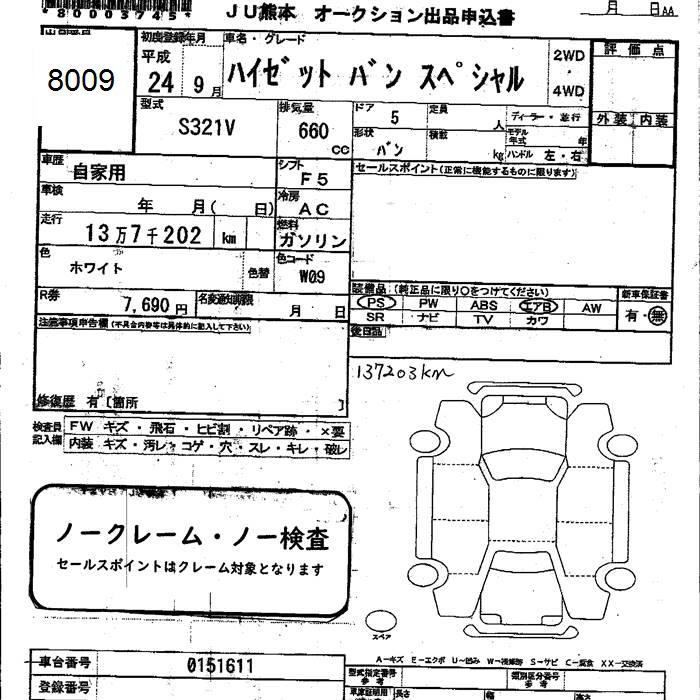 *80003745*
JU熊本 オークション出品申込書
月 日AA
8009
初度登録年月 車名・グレード
平成
24 9月 ハイゼット バン スペシャル
2WD
4WD
評価点
外装 内装
型式 S321V
排気量 660 cc
ドア 5
定員 人
ディーラー・並行
形状 バン
積載 kg
モデル年式 年
ハンドル 左・右
車歴 自家用
シフト F5
セールスポイント(正常に機能するものに限ります)
車検 年 月( 日)
冷房 AC
走行 13万7千202 km
燃料 ガソリン
色 ホワイト 色替
色コード W09
装備品 (純正品に限り○をつけてください)
新車保証書
PS PW ABS エアB AW
有・無
SR ナビ TV カワ
R券 7,690円
名変通知期限 月 日
後日品
注意事項申告欄(不具合内容等は具体的に記入して下さい)
137203km
修復歴 有〔箇所 〕
検査員記入欄
FW キズ・飛石・ヒビ割・リペア跡・×要
内装 キズ・汚レ・コゲ・穴・スレ・キレ・破レ
ノークレーム・ノー検査
セールスポイントはクレーム対象となります
スペア
A－キズ E－エクボ U－凹み W－補修跡 S－サビ C－腐食 XX－交換済
車台番号 0151611
型式指定番号 参考
類別区分番号 参考
登録番号
車庫証明用 長さ 幅 高さ